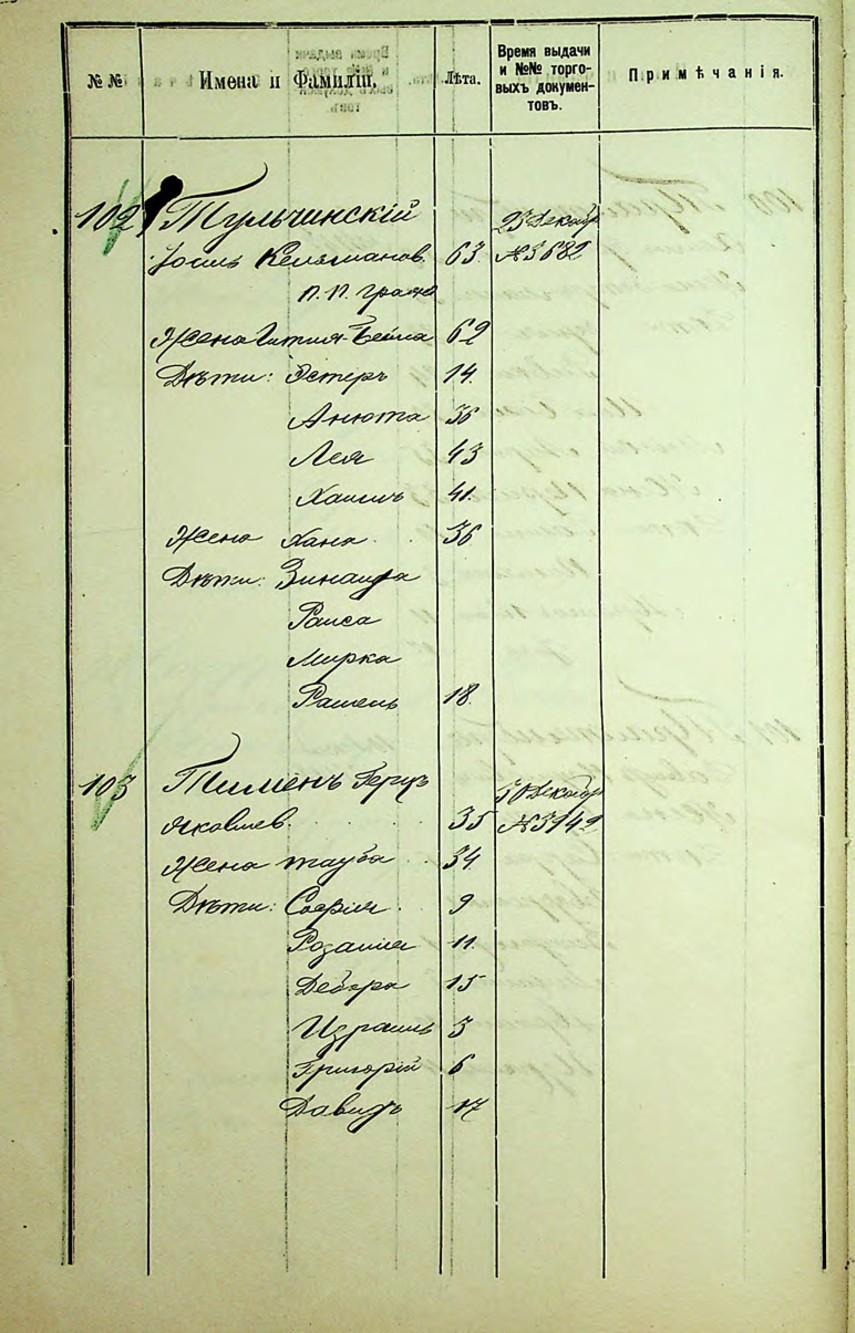 №№ Имена и Фамиліи. Лѣта. Время выдачи и №№ торговыхъ документовъ. Примѣчанія.
102 Тульчинскій 23 Декабр
Іосиль Кельманов. 63. №3682
п. п. гражд
Жена Гитля-Бейла 62
Дѣти: Эстеръ 14.
Анюта 36
Лея 43
Хаимъ 41.
Жена Хана 36
Дѣти: Зинаида
Раиса
Мирка
Рашель 18.
103 Тименъ Герцъ 30 Декабр
Яковлев. 35 №3942
Жена Тауба 34.
Дѣти: Софія 9
Розалія 11.
Дебора 15
Израиль 3
Григорій 6
Давидъ 17